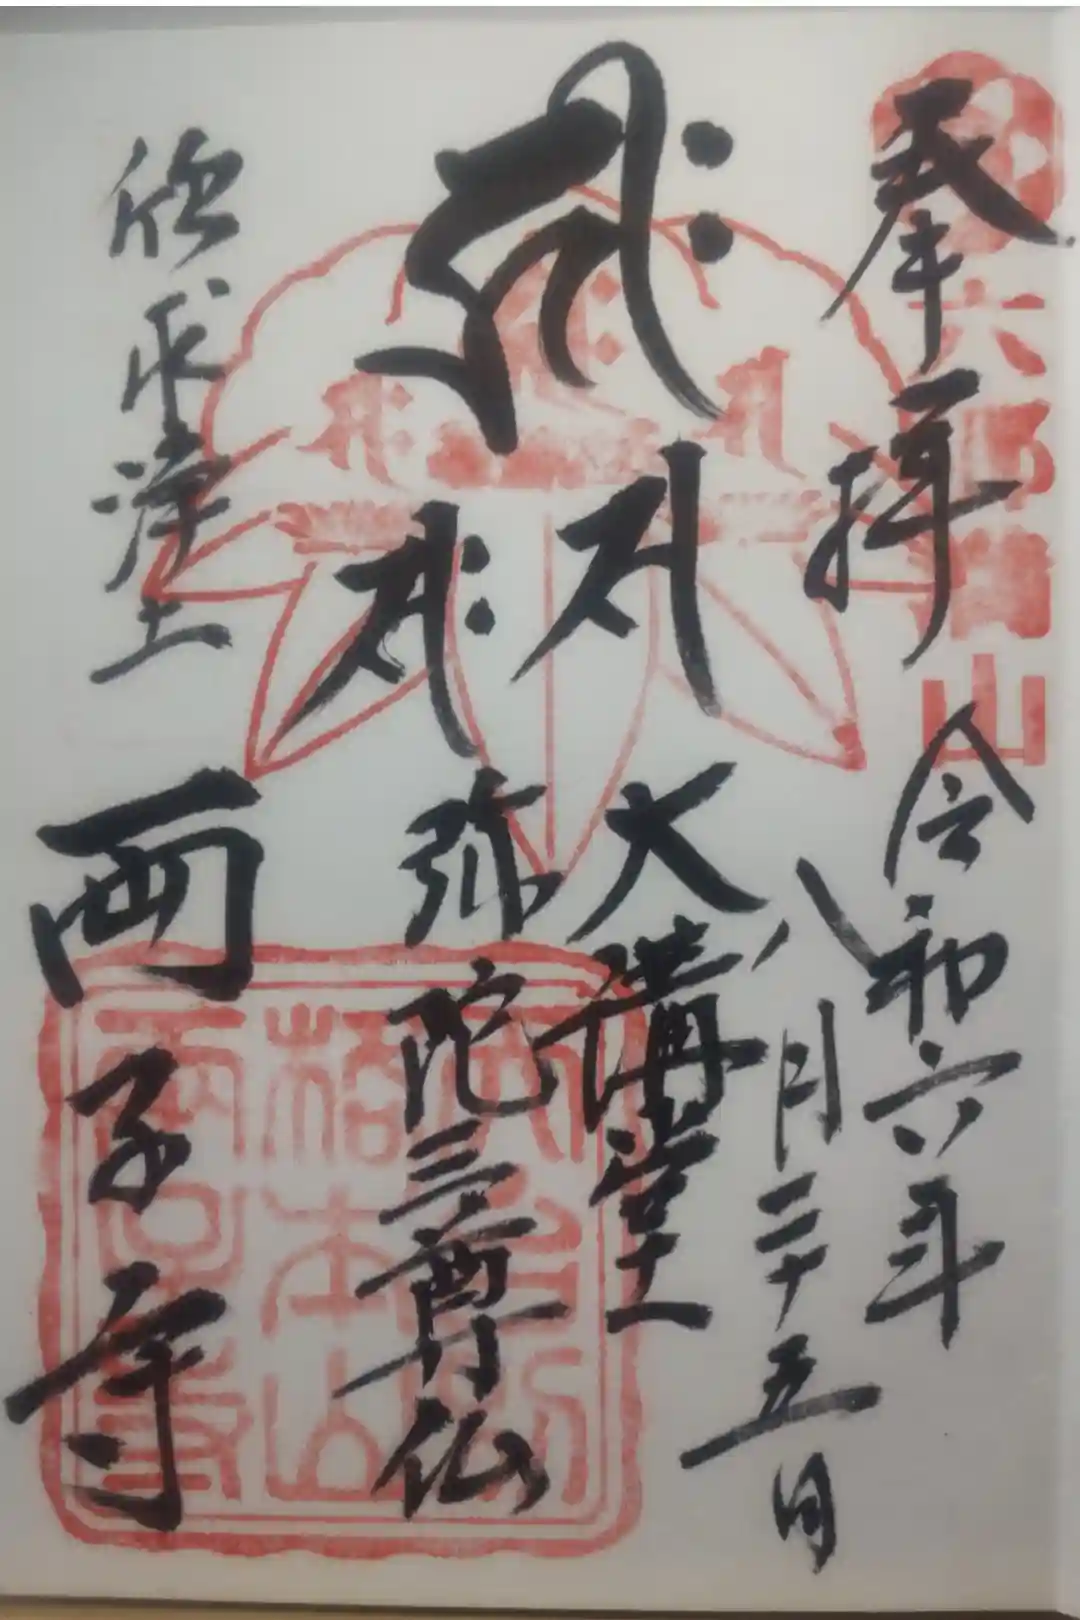 奉拝
六郷満山
令和六年
八月二十五日
𑖮𑖿𑖨𑖱𑖾
𑖭
𑖭𑖾
大講堂
弥陀三尊仏
欣求浄土
両子寺